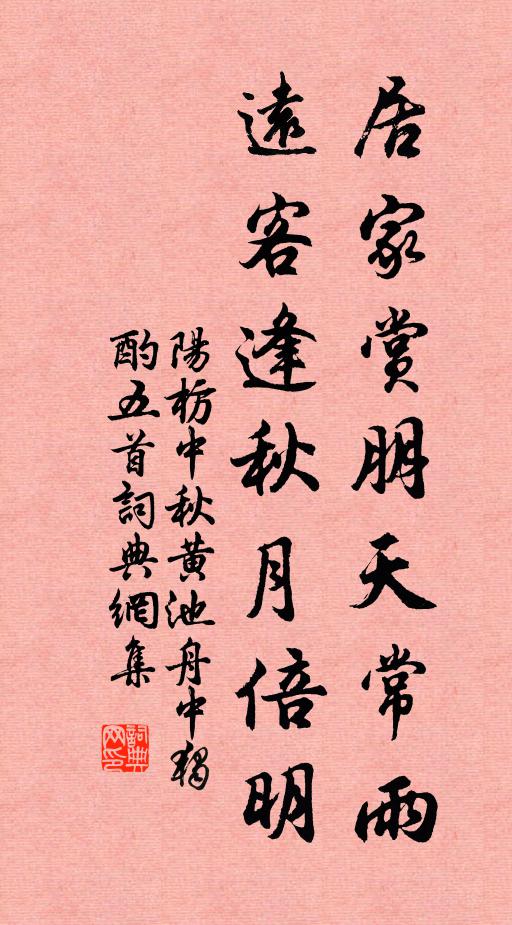 居家賞朋天常雨
遠客逢秋月倍明
陽枋中秋黄池舟中獨
酌五首詞典網集
詞典
网印